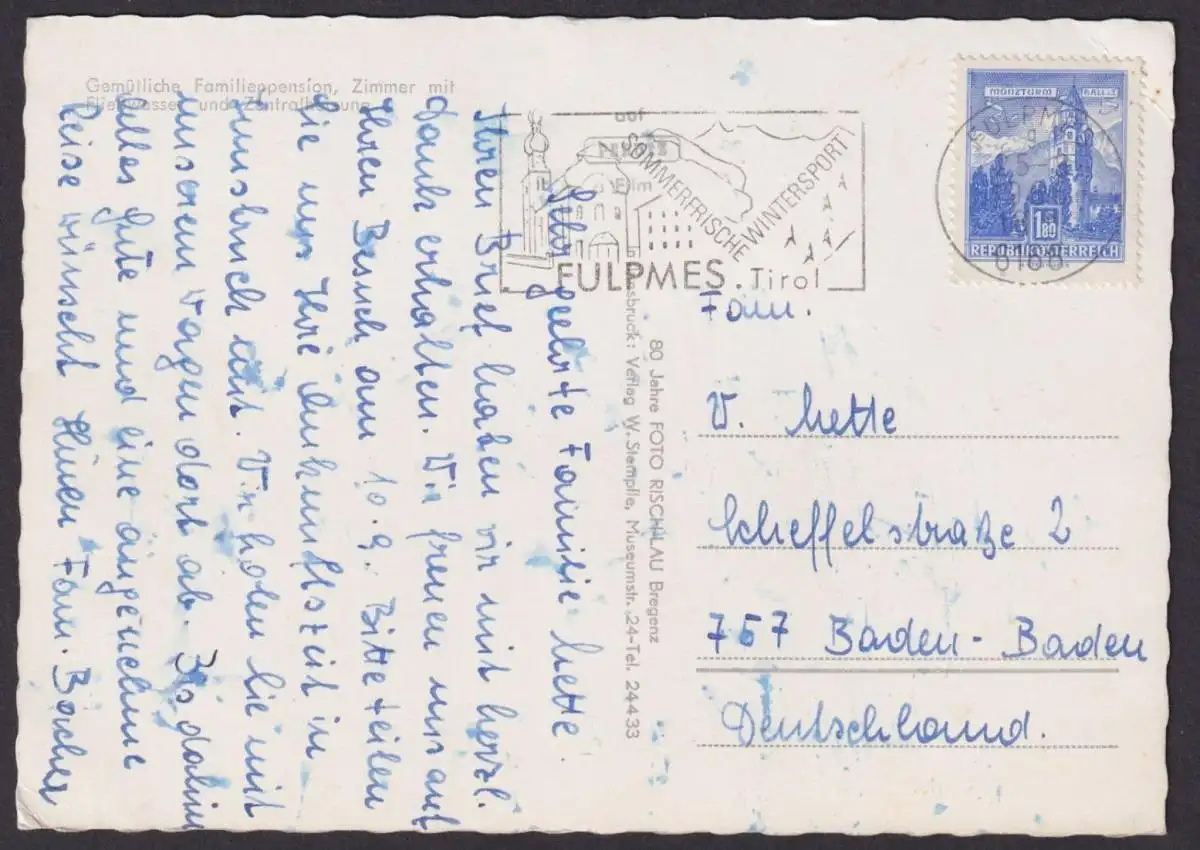 Gemütliche Familienpension, Zimmer mit
Fließwasser und Zentralheizung
Sehr geehrte Familie Mette
Ihren Brief haben wir mit herzl.
Dank erhalten. Wir freuen uns auf
Ihren Besuch am 10.9. Bitte teilen
Sie uns Ihre Ankunftszeit in
Innsbruck mit. Wir holen Sie mit
unserem Wagen dort ab. Bis dahin
alles Gute und eine angenehme
Reise wünscht Ihnen Fam.
auf
Film
SOMMERFRISCHE
WINTERSPORT
FULPMES. Tirol
80 Jahre FOTO RISCHLAU Bregenz
Innsbruck: Verlag W. Stempfle, Museumstr. 24-Tel. 24433
MÜNZTURM HALL I.T.
1.80
REPUBLIK ÖSTERREICH
FULPMES
Fam.
W. Mette
Scheffelstraße 2
757 Baden-Baden
Deutschland.